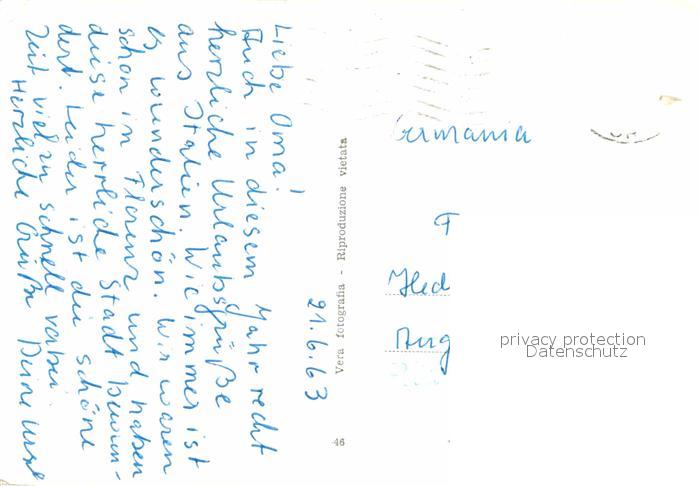 21.6.63
Liebe Oma!
Auch in diesem Jahr recht
herzliche Urlaubsgrüße
aus Italien. Wie immer ist
es wunderschön. Wir waren
schon in Florenz und haben
diese herrliche Stadt bewun-
dert. Leider ist die schöne
Zeit viel zu schnell vorbei.
Herzliche Grüße Deine
Vera fotografia - Riproduzione vietata
46
Germania
F
Hed
Aug
privacy protection
Datenschutz